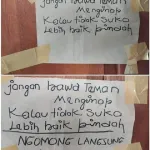 jangan bawa Teman
Menginap
Kalau tidak Suka
Lebih baik pindah
jangan bawa Teman
Menginap
Kalau tidak Suka
Lebih baik pindah
NGOMONG LANGSUNG